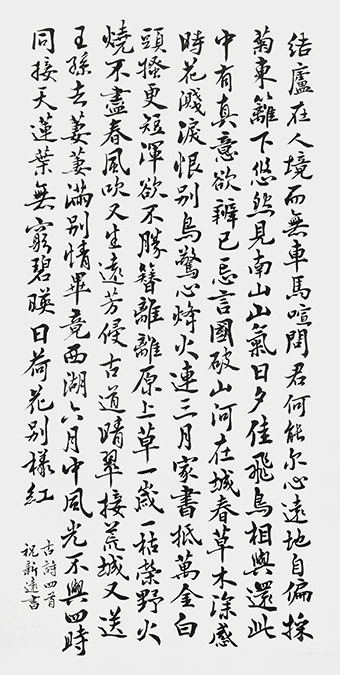 結廬在人境而無車馬喧問君何能尔心遠地自偏採
菊東籬下悠然見南山山氣日夕佳飛鳥相與還此
中有真意欲辨已忘言國破山河在城春草木深感
時花濺淚恨別鳥驚心烽火連三月家書抵萬金白
頭搔更短渾欲不勝簪離離原上草一歲一枯榮野火
燒不盡春風吹又生遠芳侵古道晴翠接荒城又送
王孫去萋萋滿別情畢竟西湖六月中風光不與四時
同接天蓮葉無窮碧暎日荷花別樣紅
古詩四首
祝新遠書